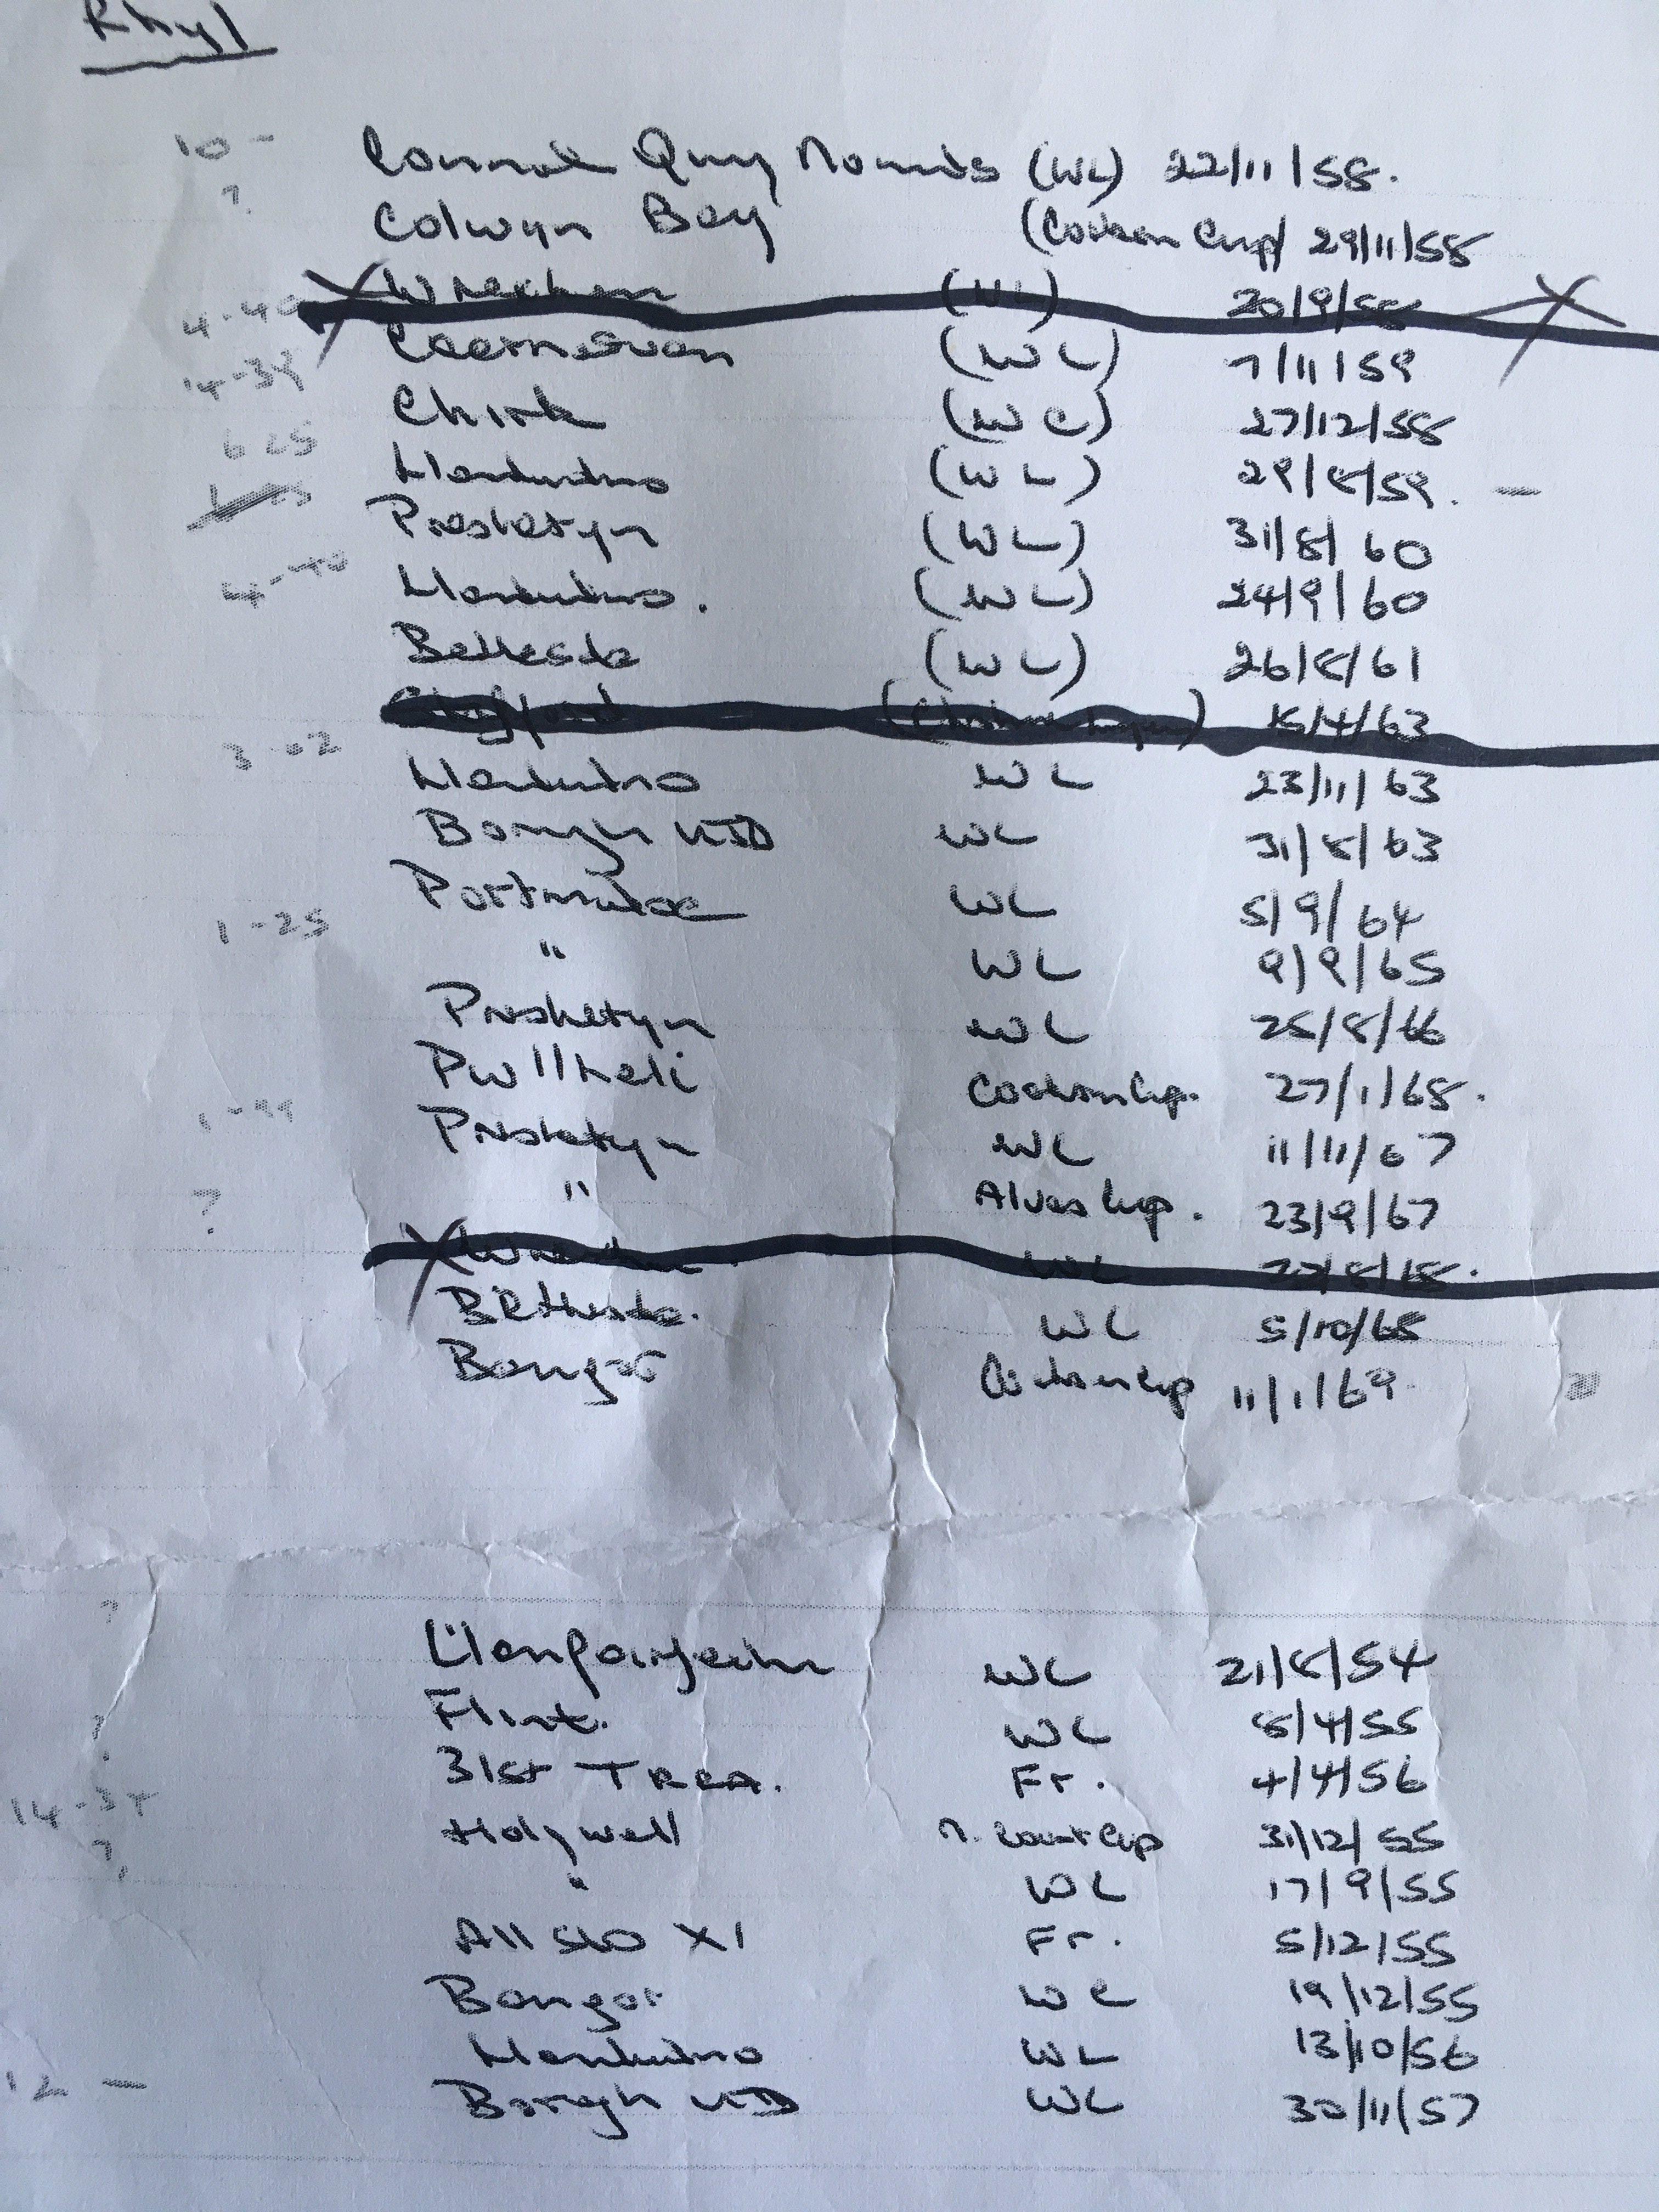 Rhyl
10 - Connah Quay Nomads (WL) 22/11/58.
? Colwyn Bay (Cookson Cup) 29/11/58
Wrexham (WL) 20/9/58
4-40 Caernarvon (WL) 7/11/59
4-34 Chirk (WC) 27/12/58
6 25 Llandudno (WL) 29/8/59. -
Prestatyn (WL) 31/8/60
4-40 Llandudno. (WL) 24/9/60
Bethesda (WL) 26/8/61
15/4/63
3-02 Llandudno WL 23/11/63
Borough UTD WL 31/8/63
Portmadoc WL 5/9/64
1-25 " WL 9/9/65
Prestatyn WL 25/8/66
Pwllheli Cookson Cup. 27/1/68.
Prestatyn WL 11/11/67
? " Alves Cup. 23/9/67
Wrexham. WL
Bethesda. WL 5/10/68
Bangor Cookson Cup 11/1/69.
?
Llanfairfechan WL 21/8/54
? Flint. WL 8/4/55
31st TRRA. Fr. 4/4/56
14-34 Holywell N. Coast Cup 31/12/55
? " WL 17/9/55
All XI Fr. 5/12/55
Bangor WL 19/12/55
Llandudno WL 13/10/56
12 - Borough UTD WL 30/11/57